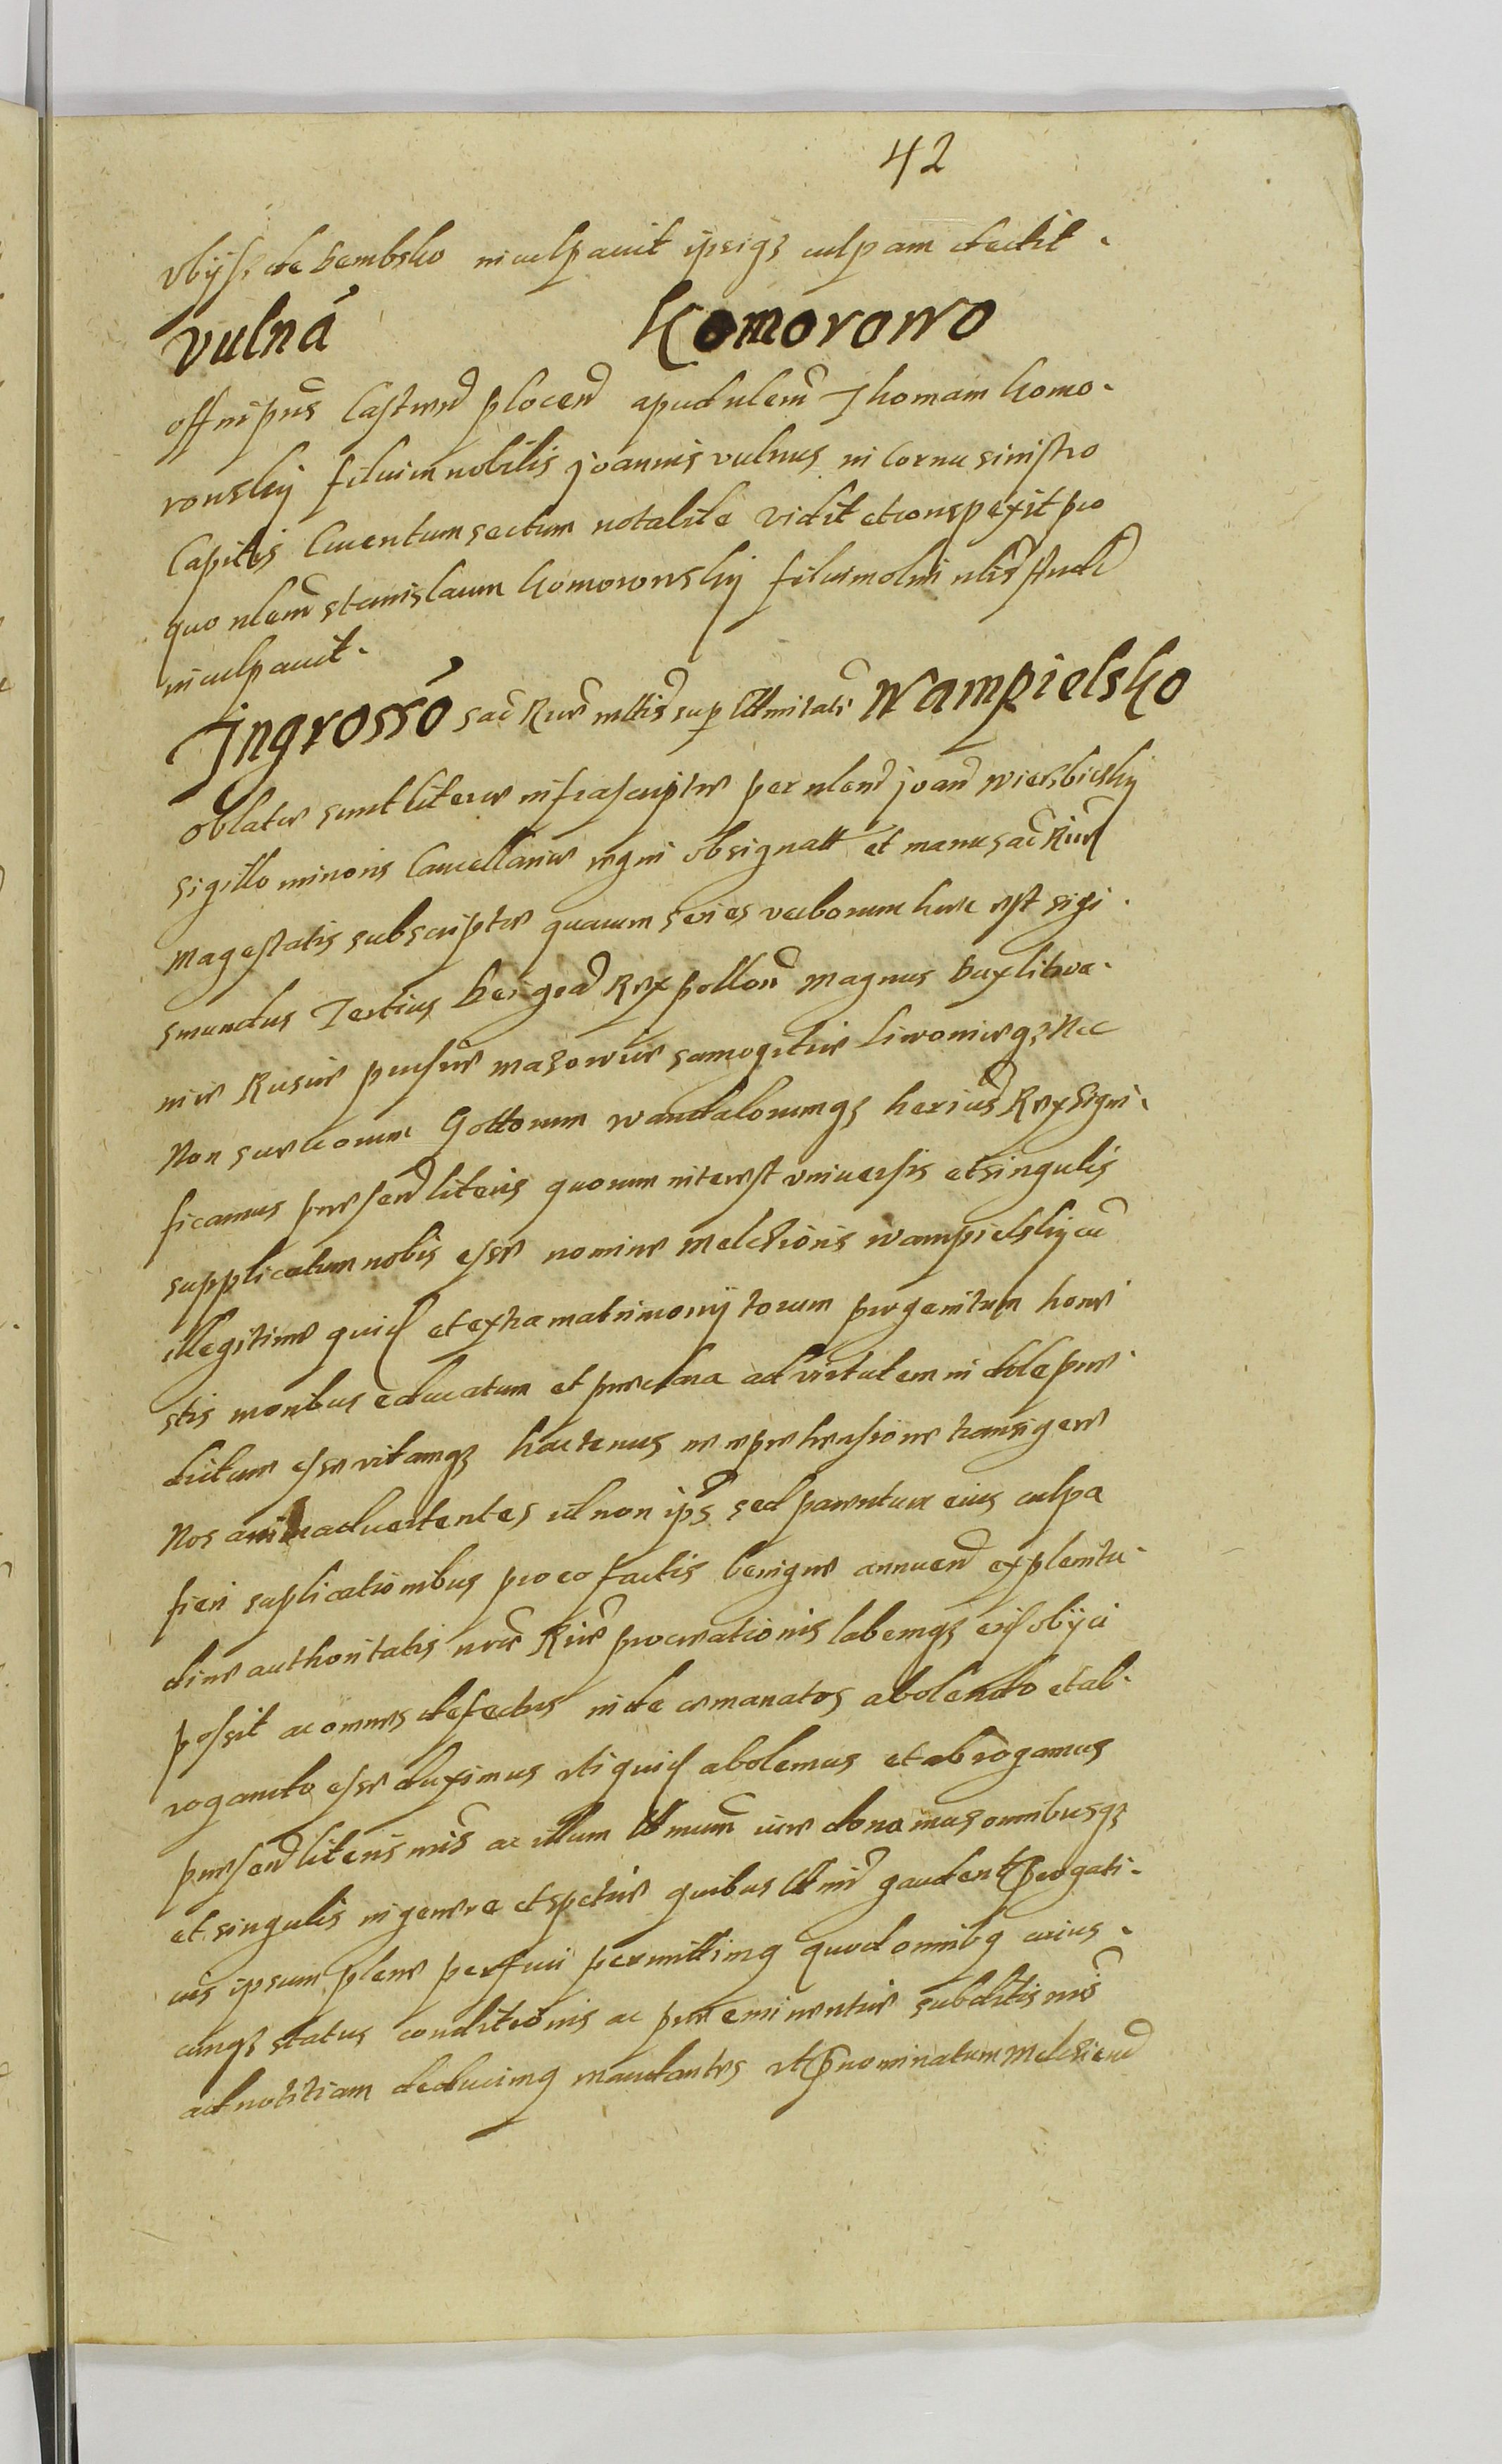 42
vbijsz de bembsko inculpavit ipsiqz culpam dedit.
vulná Komorowo
off in pns̃ Castren̄ plocen̄ apud nlem̃ Thomam Komo.
rowskij filium nobilis joannis vulnus in Cornu sinistro
Capitis Cruentum sectum notabile vidit et conspexit pro
quo nlem̃ stanislaum Komorowskij filium olim nlis̃
inculpavit.
Ingrossó sac̃ Ræ mttis̃ sup lttmitatē Wampielsko
Oblatæ sunt literæ infrascriptæ per nlem̃ joan̄ wierzbickij
sigillo minoris Cancellariæ regni obsignatt et manu sac̃ Riæ
Magestatis subscriptæ quarum series verborum hæc est sigi.
smundus Tertius Dei gra̅ Rex pollon̄ Magnus Dux litwa.
niæ Rusiæ prusiæ masowiæ samogitiæ Liwoniæqz Nec
Non suecorum Gottorum wandalorumqz heriūs Rex Signi.
ficamus præsen̄ literis quorum interest vniuersis et singulis
supplicatum nobis esse nomine Melchioris wampielskij cū
illegitime quid et extra matrimonij torum progenitum hone
stis moribus educatum et præclara ad virtutem indole præ
ditum esse vitamqz hactenus re reprehensione transigere
Nos animaduertentes id non ips̃ sed parentum eius culpa
fieri suplicationibus pro eo factis benigne annuen̄ ex plenitu.
dine authoritatis nræ Riæ procreationis labemqz eis obijci
possit ac omnes defectus inde emanatos abolendo et ab.
rogando esse duximus vti quid abolemus et abrogamus
præsen̄ literis nris̃ ac illum lttmum̃ iure donamus omnibusqz
et singulis in genere et spetie quibus lttmi gaudent prerogati.
uis ipsum plene perfrui permittimq quod omnibq cuius.
cunqz status conditionis ac præeminentiæ subditis nris̃
ad notitiam deducimq mandantes vt prenominatum Melchiorē